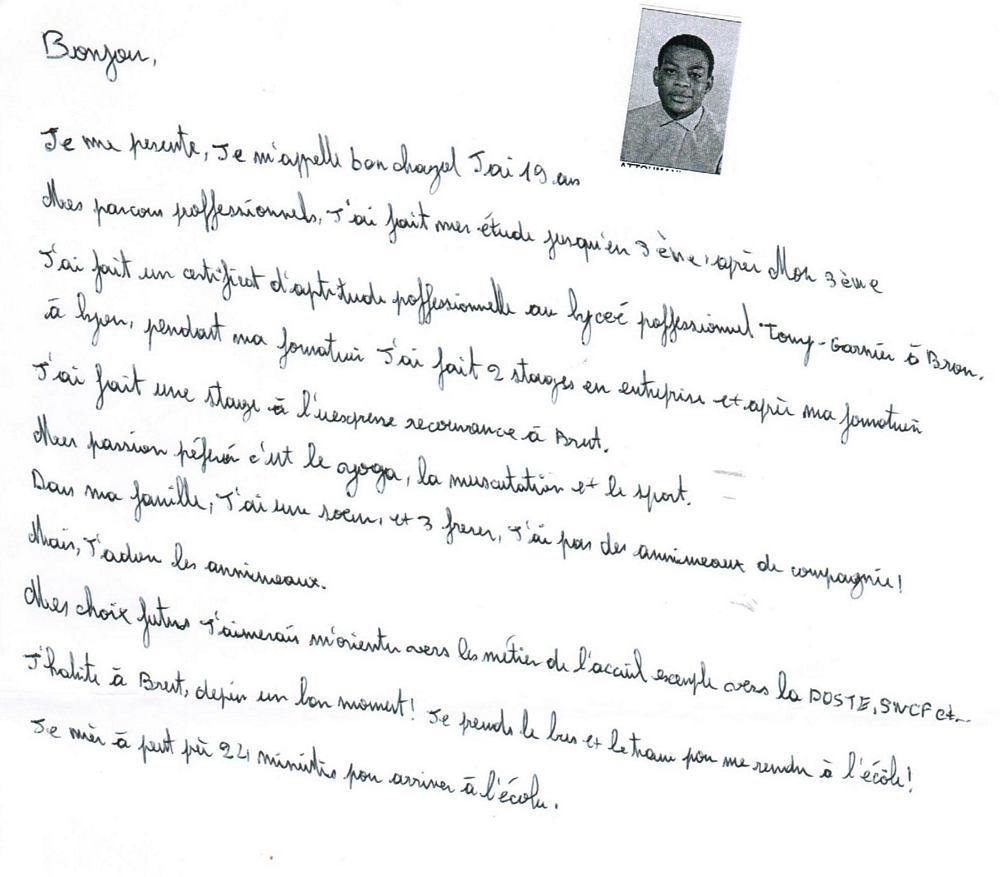 Bonjou,
Je me pesente, Je m'appelle ban chazel J'ai 19 ans
Mes parcous poffessionnels, J'ai fait mes étude jusqu'en 3ème, après Mon 3ème
J'ai fait un certificat d'aptitude poffessionnelle au lyceé poffessionnel Tony-Garnier à Bron.
à lyon, pendant ma fomation J'ai fait 2 stages en entreprise et après ma fomation
J'ai fait une stage à recouvrance à Brest.
Mes passion péféré c'est le yoga, la musculation et le sport.
Dans ma famille, J'ai une soeur, et 3 freres, J'ai pas des annimeaux de compagnie!
Mais, J'adore les annimeaux.
Mes choix futurs J'aimerais m'orienter vers les métier de l'accueil exemple vers la POSTE, SNCF et...
J'habite à Brest, depui un bon moment! Je prends le bus et le tram pou me rendre à l'école!
Je à peut 24 pou arriver à l'école.